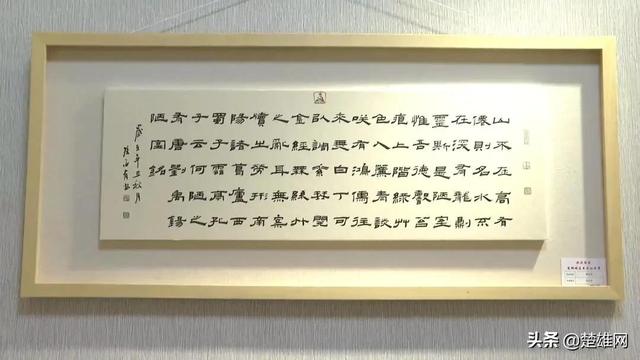 山不在高有
僊則名水不
在深有龍則
靈斯是陋室
惟吾德馨苔
痕上階綠艸
色入簾青談
咲有鴻儒往
來無白丁可
以調素琴閱
金經無絲竹
之亂耳無案
牘之勞形南
陽諸葛廬西
蜀子雲亭孔
子云何陋之
有唐劉禹錫
陋室銘
年 秋月
头条 @楚雄网